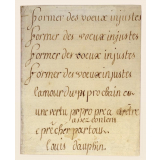 former des voeux injustes
former des voeux injustes
former des voeux injustes
former des voeux injustes
amour du prochain est
une vertu propre
a se donton
precher partout
Louis dauphin.